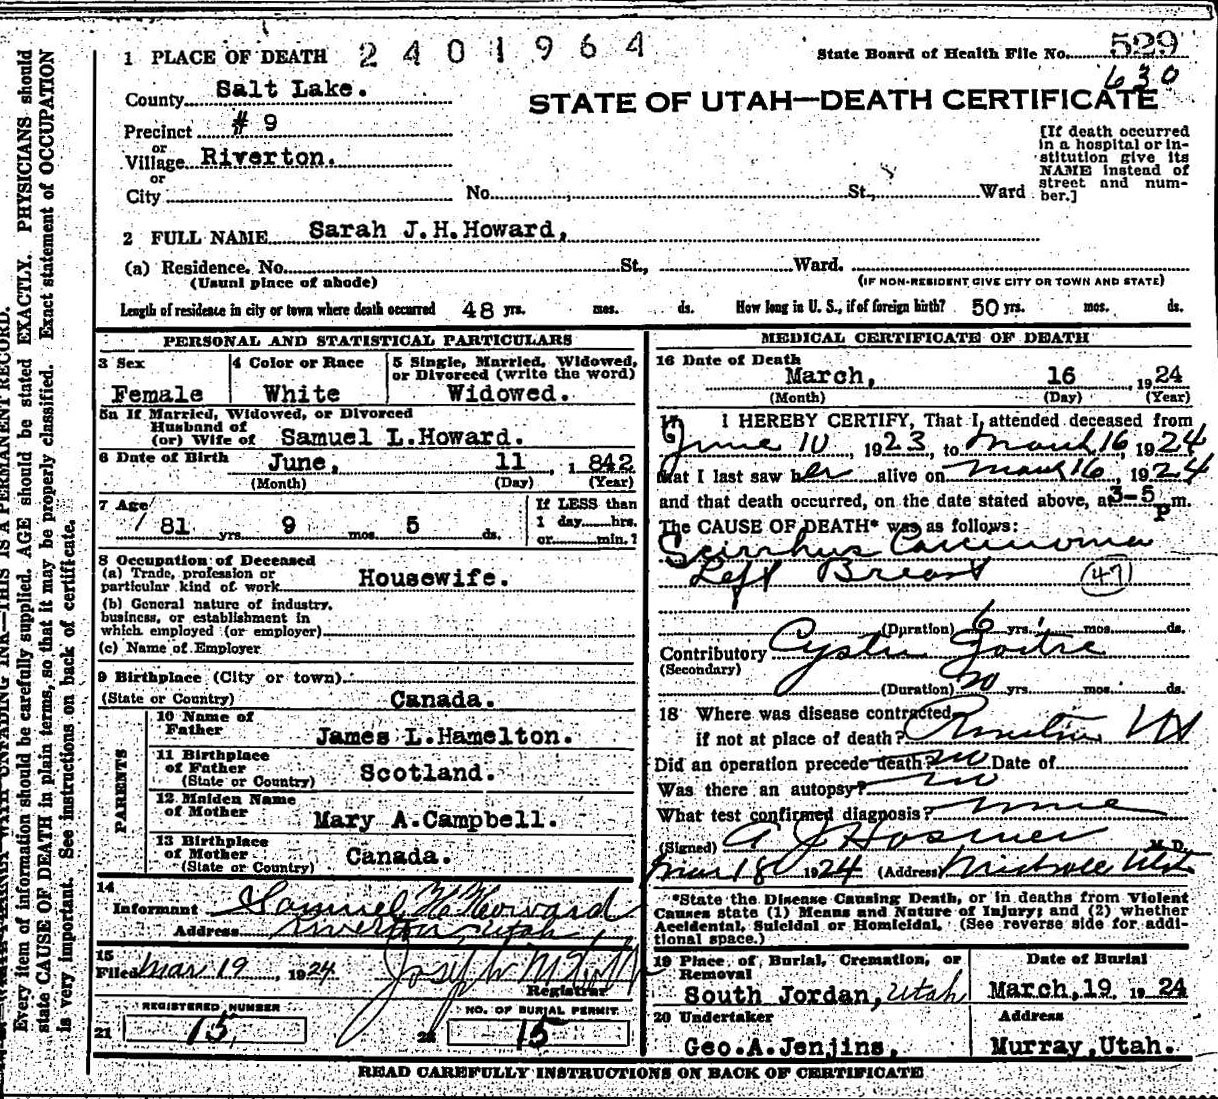 1 PLACE OF DEATH 2401964
State Board of Health File No. 529
630
County Salt Lake.
STATE OF UTAH—DEATH CERTIFICATE
Precinct # 9
or
Village Riverton.
or
City No. St., Ward
[If death occurred
in a hospital or in-
stitution give its
NAME instead of
street and num-
ber.]
2 FULL NAME Sarah J.H.Howard,
(a) Residence. No. St., Ward.
(Usual place of abode) (IF NON-RESIDENT GIVE CITY OR TOWN AND STATE)
Length of residence in city or town where death occurred 48 yrs. mos. ds. How long in U. S., if of foreign birth? 50 yrs. mos. ds.
PERSONAL AND STATISTICAL PARTICULARS
3 Sex
Female
4 Color or Race
White
5 Single, Married, Widowed,
or Divorced (write the word)
Widowed.
5a If Married, Widowed, or Divorced
Husband of
(or) Wife of Samuel L.Howard.
6 Date of Birth June, 11, 1842
(Month) (Day) (Year)
7 Age
81 yrs. 9 mos. 5 ds.
If LESS than
1 day hrs.
or min.?
8 Occupation of Deceased
(a) Trade, profession or
particular kind of work Housewife.
(b) General nature of industry,
business, or establishment in
which employed (or employer)
(c) Name of Employer
9 Birthplace (City or town)
(State or Country) Canada.
PARENTS
10 Name of
Father James L.Hamelton.
11 Birthplace
of Father
(State or Country) Scotland.
12 Maiden Name
of Mother Mary A.Campbell.
13 Birthplace
of Mother
(State or Country) Canada.
14
Informant Samuel H. Howard
Address Riverton, Utah,
15
Filed Mar 19, 1924
Registrar
REGISTERED NUMBER
21 15
NO. OF BURIAL PERMIT
22 15
MEDICAL CERTIFICATE OF DEATH
16 Date of Death
March, 16, 1924
(Month) (Day) (Year)
17 I HEREBY CERTIFY, That I attended deceased from
June 10, 1923, to March 16, 1924
that I last saw her alive on March 16, 1924
and that death occurred, on the date stated above, at 3-5 P m.
The CAUSE OF DEATH* was as follows:
Scirrhus Carcinoma
Left Breast (47)
(Duration) 6 yrs. mos. ds.
Contributory Cystic Goitre
(Secondary)
(Duration) 20 yrs. mos. ds.
18 Where was disease contracted
if not at place of death? Riverton Ut
Did an operation precede death? no Date of
Was there an autopsy? no
What test confirmed diagnosis? none
(Signed) A J Hosmer M. D.
Mar 18, 1924 (Address) Midvale Utah
*State the Disease Causing Death, or in deaths from Violent
Causes state (1) Means and Nature of Injury; and (2) whether
Accidental, Suicidal or Homicidal. (See reverse side for addi-
tional space.)
19 Place of Burial, Cremation, or
Removal
South Jordan, Utah
Date of Burial
March, 19 1924
20 Undertaker
Geo.A.Jenjins,
Address
Murray,Utah.
READ CAREFULLY INSTRUCTIONS ON BACK OF CERTIFICATE
UNFADING INK—THIS IS A PERMANENT RECORD.
Every item of information should be carefully supplied. AGE should be stated EXACTLY. PHYSICIANS should
state CAUSE OF DEATH in plain terms, so that it may be properly classified. Exact statement of OCCUPATION
is very important. See instructions on back of certificate.